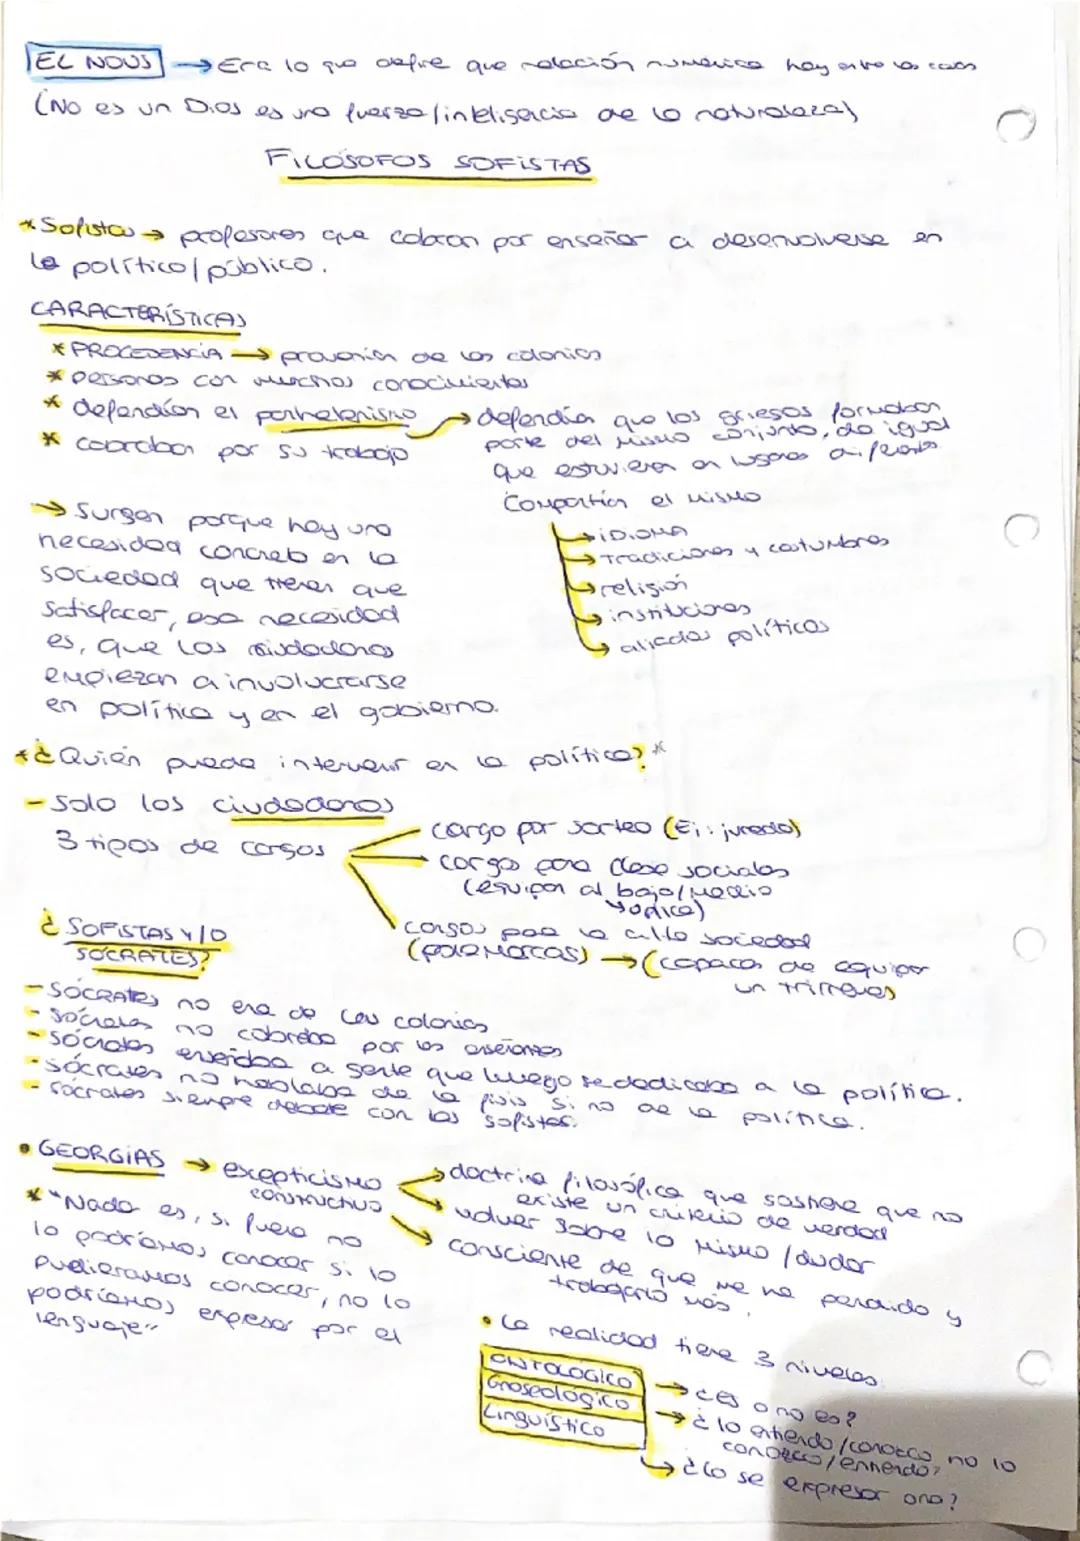 EL NOUS → Era lo que define que relación numérica hay entre las cosas
(No es un Dios es una fuerza/inteligencia de la naturaleza)
FILÓSOFOS SOFISTAS
* Sofistas → profesores que cobran por enseñar a desenvolverse en
lo político/público.
CARACTERÍSTICAS
* PROCEDENCIA → provenían de las colonias
* personas con muchos conocimientos
* defendían el panhelenismo → defendía que los griegos formaban
parte del mismo conjunto, da igual
que estuvieran en lugares diferentes
* cobraban por su trabajo
Compartían el mismo
→ IDIOMA
→ Tradiciones y costumbres
→ religión
→ instituciones
→ aliados políticos
→ Surgen porque hay una
necesidad concreta en la
sociedad que tienen que
satisfacer, esa necesidad
es, que los ciudadanos
empiezan a involucrarse
en política y en el gobierno.
* ¿Quién puede intervenir en la política? *
- Solo los ciudadanos
3 tipos de cargos
cargo por sorteo (Ej: jurado)
cargos para clase sociales
(equipar al bajo/medio
cargos para la alta sociedad
(polemarcas) → (capaces de equipar
un trirremes)
¿SOFISTAS Y/O
SÓCRATES?
- SÓCRATES no era de las colonias
- Sócrates no cobraba por las enseñanzas
- Sócrates enseñaba a gente que luego se dedicaba a la política.
- Sócrates no hablaba de la fisis si no de la política.
- Sócrates siempre debate con los sofistas.
• GEORGIAS → excepticismo
constructivo
→ doctrina filosófica que sostiene que no
existe un criterio de verdad
→ volver sobre lo mismo / dudar
→ consciente de que me he perdido y
trabajarlo más.
* "Nada es, si fuera no
lo podríamos conocer si lo
pudieramos conocer, no lo
podríamos expresar por el
lenguaje"
• La realidad tiene 3 niveles
ONTOLÓGICO → ¿es o no es?
Gnoseológico → ¿lo entiendo/conozco, no lo
conozco/entiendo?
Linguístico → ¿lo se expresar o no?